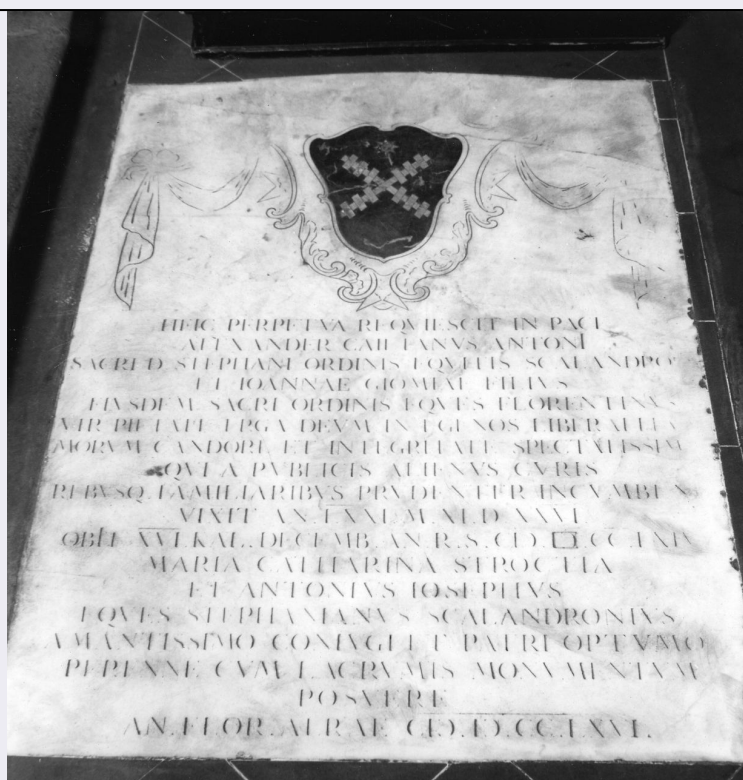 HEIC PERPETVA REQVIESCIT IN PACE
ALEXANDER CAIETANVS ANTONI
SACRI D. STEPHANI ORDINIS EQVITIS SCALANDRO
ET IOANNAE GIOMIAE FILIVS
EIVSDEM SACRI ORDINIS EQVES FLORENTINVS
VIR PIETATE ERGA DEVM IN EGENOS LIBERALITA
MORVM CANDORE ET INTEGRITATE SPECTATISSIM
QVI A PVBLICIS ALIENVS CVRIS
REBVSQ. FAMILIARIBVS PRVDENTER INCVMBENS
VIXIT AN. LXXI. M. XI. D. XXVI
OBIIT XVI. KAL. DECEMB. AN. R. S.
MARIA CATHARINA STROCTIA
ET ANTONIVS IOSEPHVS
EQVES STEPHANIANVS SCALANDRONIVS
AMANTISSIMO CONIVGI ET PATRI OPTVMO
PERENNE CVM LACRVMIS MONVMENTVM
POSVERE
AN. FLOR. AERAE CIƆ.IƆ.CC.LXVI.